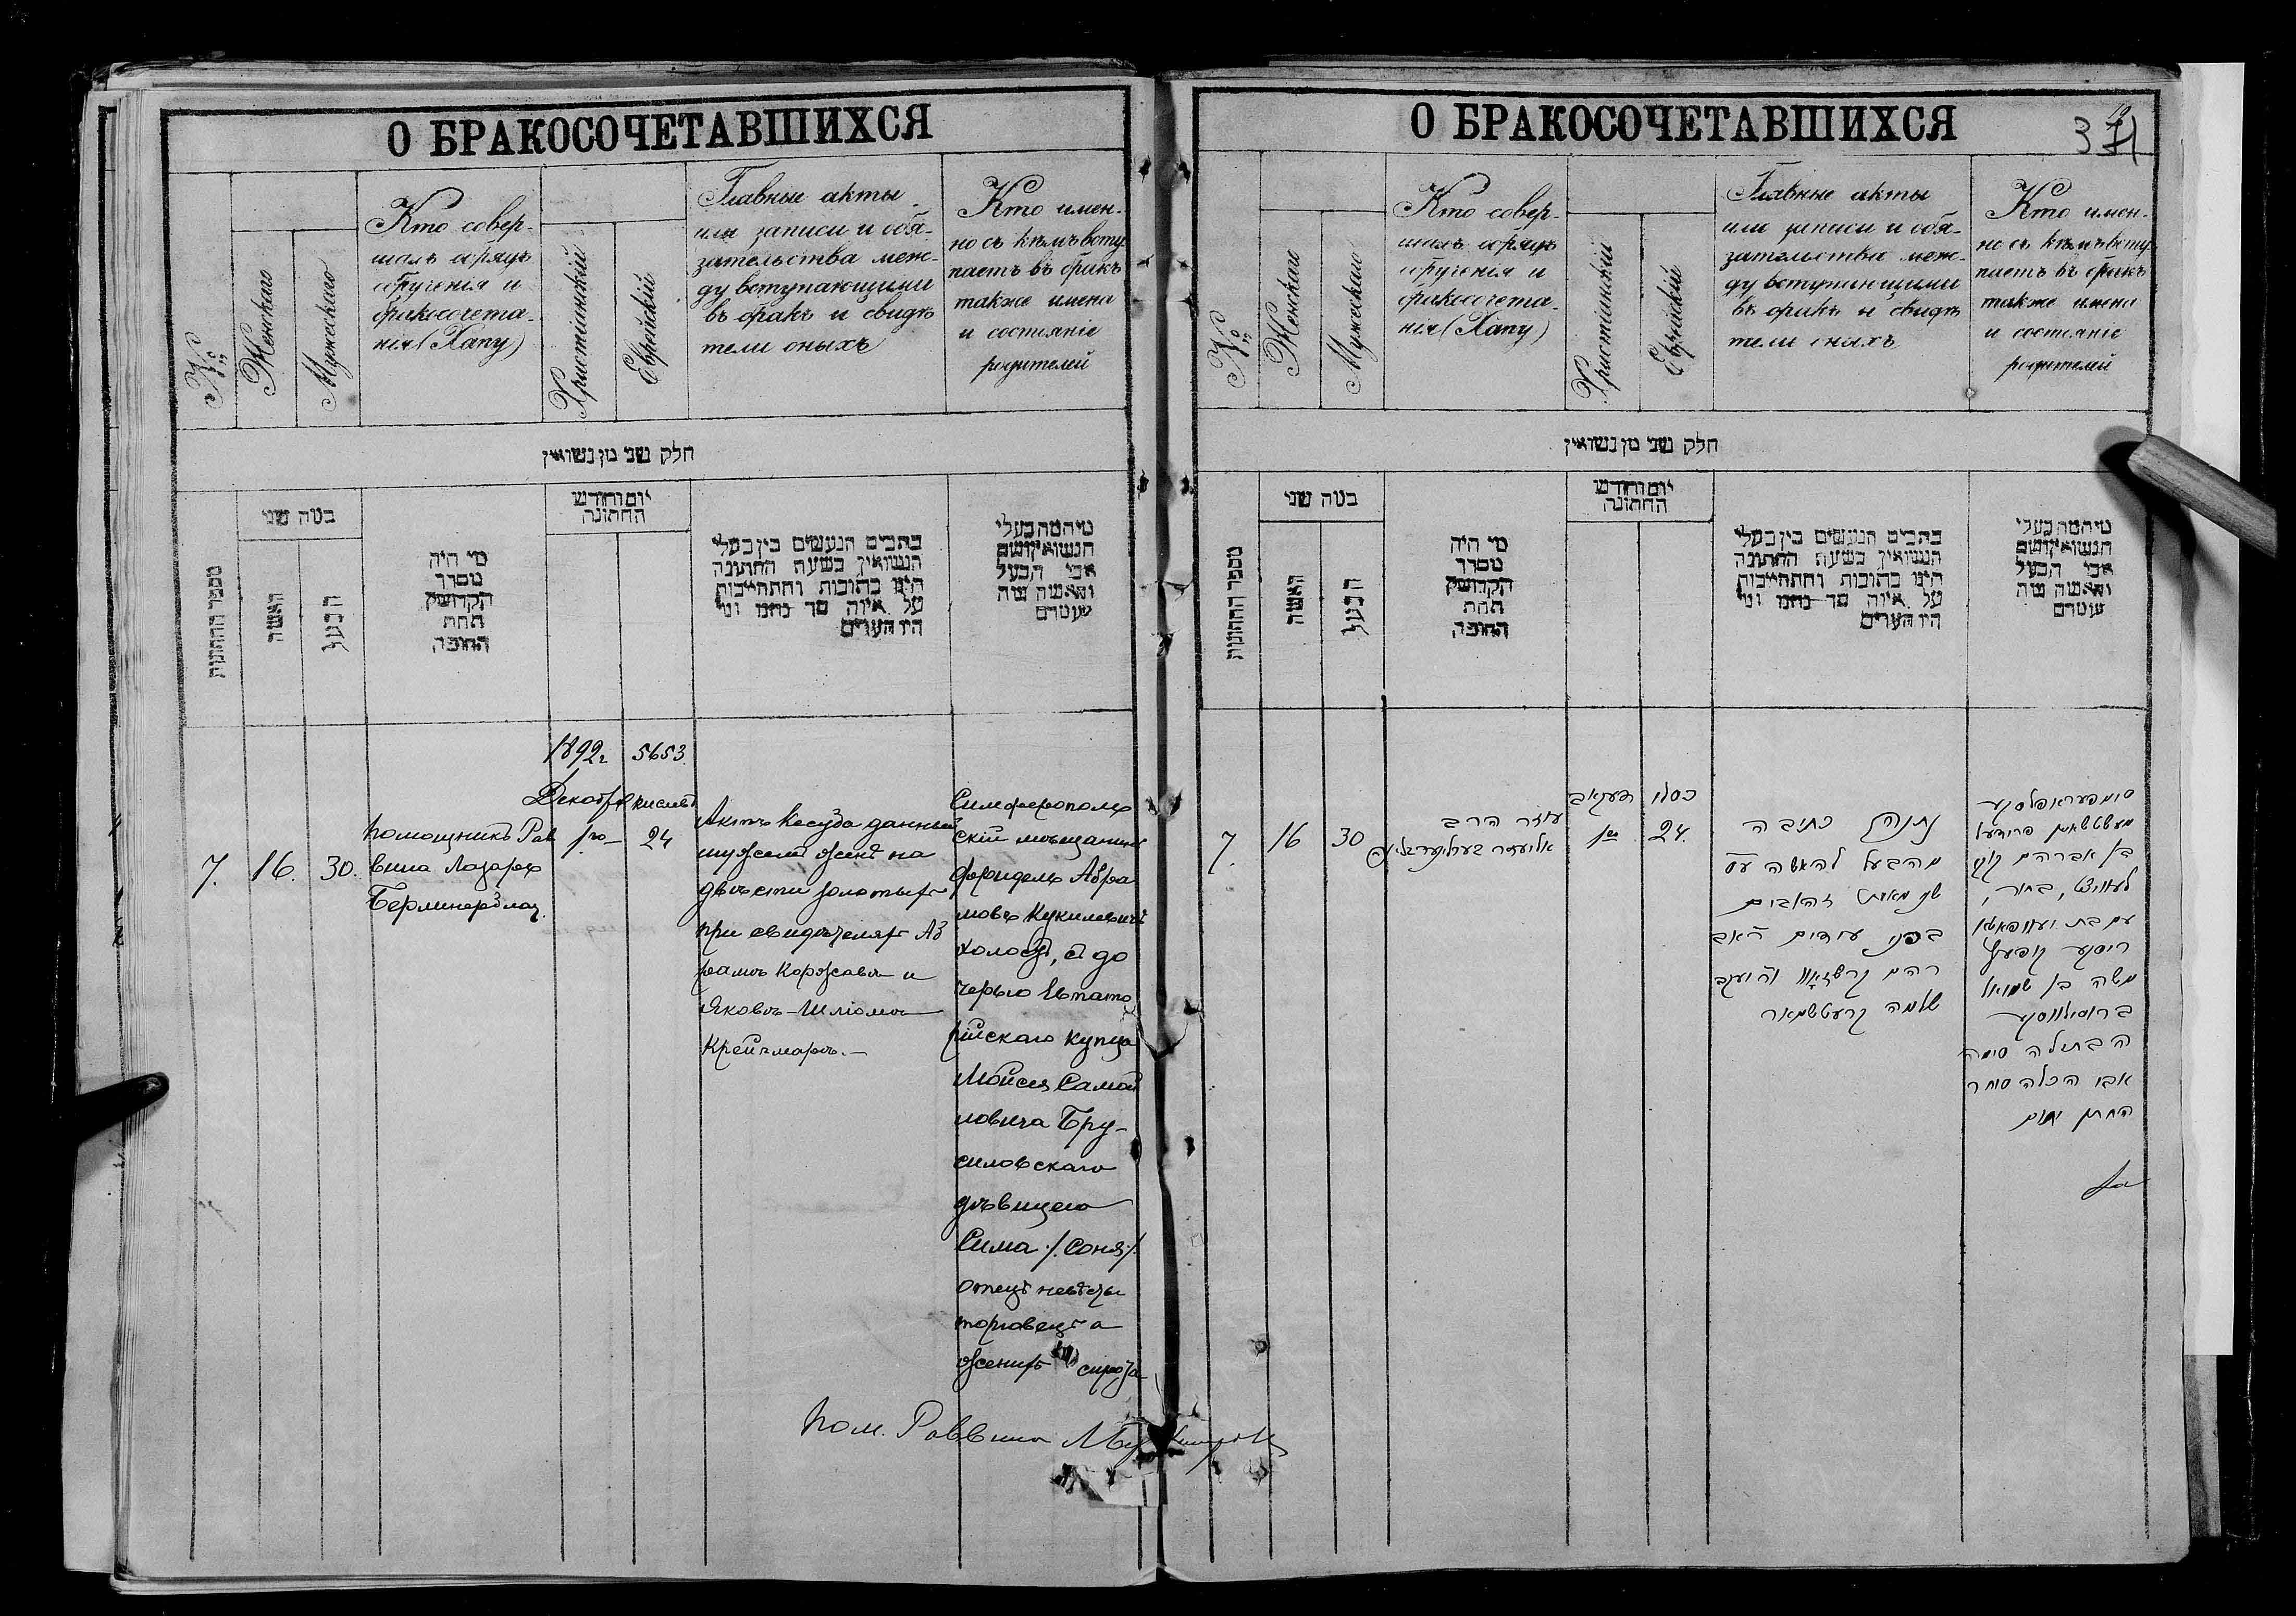 О БРАКОСОЧЕТАВШИХСЯ
№
Женскаго
Мужескаго
Кто совер-
шалъ обрядъ
обрученія и
бракосочета-
нія (Хапу)
Христіанскій
Еврейскій
Главные акты
или записи и обя-
зательства меж-
ду вступающими
въ бракъ и свидѣ
тели оныхъ
Кто имен-
но съ кѣмъ всту
паетъ въ бракъ
также имена
и состояніе
родителей
חלק שני מן נשואין
מספר החתונות
כמה שני
האשה
הבעל
מי היה
מסדר
הקדושין
תחת
החופה
יום וחודש
החתונה
כתבים הנעשים בין בעלי
הנשואין בשעת החתונה
היינו כתובות והתחייבות
על איזה סך נתנו ומי
היו העדים
מי המה בעלי
הנשואין ושם
אבי הבעל
והאשה ומה
מעמדם
1892 г
5653.
Декабря
Кислев
7.
16.
30.
Помощникъ Рав
вина Лазарь
Берлинерблау.
1го
24
Актъ Кесуба данный
мужемъ женѣ на
двѣсти золотыхъ
при свидѣтеляхъ Аб
рамъ Коржавъ и
Яковъ-Шліома
Крейчмаръ.—
Симферополь
скій мѣщанинъ
Фридель Абра
мовъ Кукилевичъ
холостъ, съ до
черью Евпато
рійскаго купца
Мойсея Самой
ловича Бру-
силовскаго
дѣвицею
Сима /. Соня /.
отецъ невѣсты
торговецъ а
женихъ сирота
Пом. Раввина
О БРАКОСОЧЕТАВШИХСЯ
37
№
Женскаго
Мужескаго
Кто совер-
шалъ обрядъ
обрученія и
бракосочета-
нія (Хапу)
Христіанскій
Еврейскій
Главные акты
или записи и обя-
зательства меж-
ду вступающими
въ бракъ и свидѣ
тели оныхъ
Кто имен-
но съ кѣмъ всту
паетъ въ бракъ
также имена
и состояніе
родителей
חלק שני מן נשואין
מספר החתונות
כמה שני
האשה
הבעל
מי היה
מסדר
הקדושין
תחת
החופה
יום וחודש
החתונה
כתבים הנעשים בין בעלי
הנשואין בשעת החתונה
היינו כתובות והתחייבות
על איזה סך נתנו ומי
היו העדים
מי המה בעלי
הנשואין ושם
אבי הבעל
והאשה ומה
מעמדם
7.
16
30
עוזר הרב
אליעזר בערלינערבלויא
דעקאב
1го
כסלו
24.
נתנה כתובה
מהבעל להאשה על
שני מאות זהובים
בפני עידים האב
רהם קרשזאוו והיעקב
שלמה קרעטשמאר
סומפעראפלסקער
מעשטשאנין פרידעל
בן אברהם קוקי
לעוויטש, בחור,
עם בת יעווופאטא
ריסקער קופעץ
משה בן שמואל
ברוסילווסקער
הבתולה סימה
אבי הכלה סוחר
החתן יתום